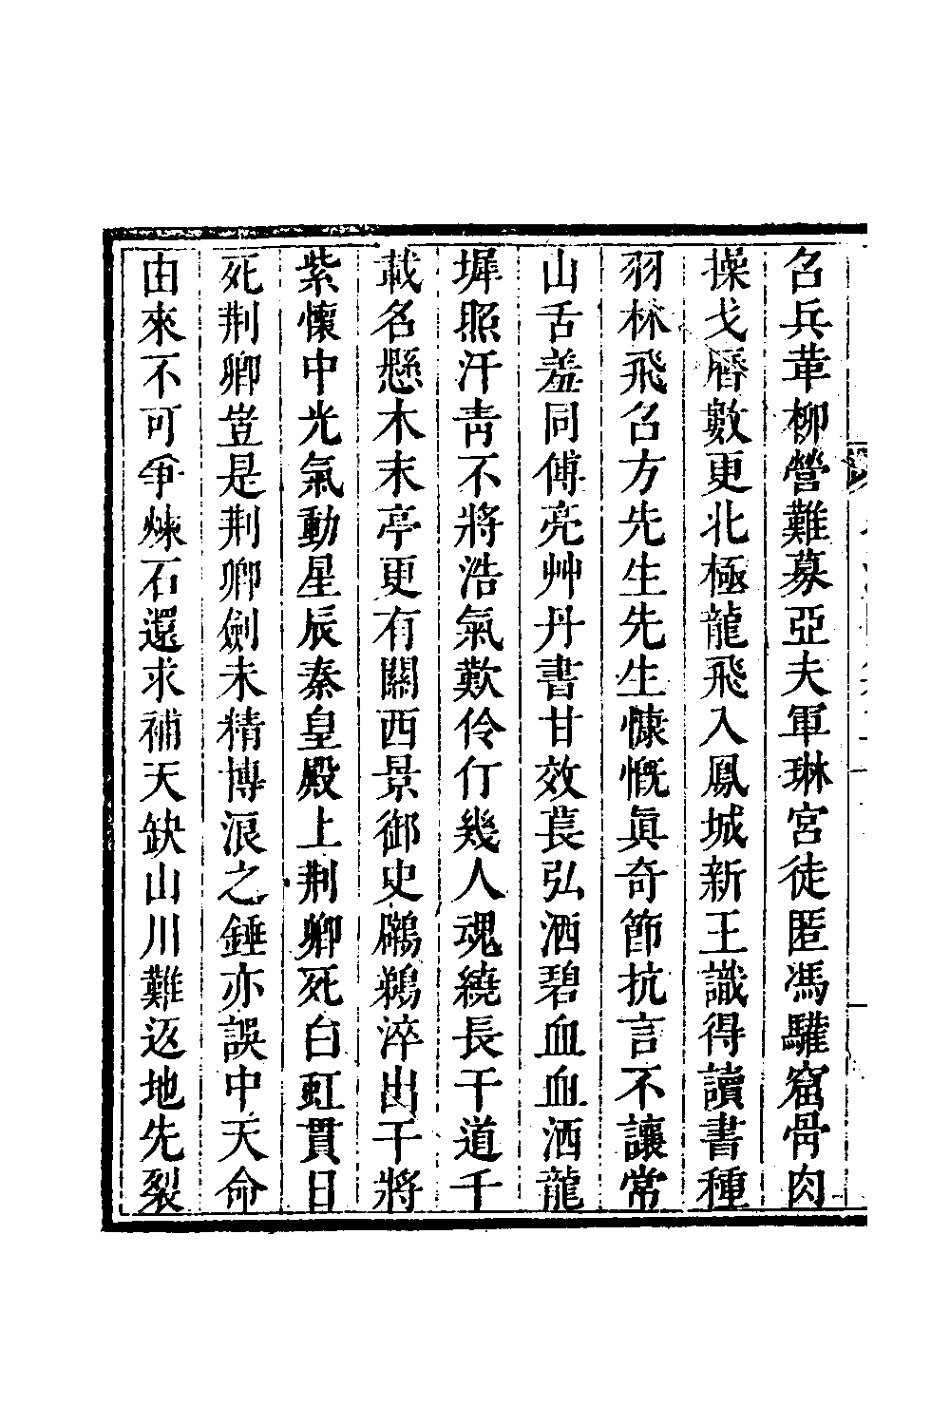 召兵葦柳營難募亞夫軍琳宮徒匿馮驩窟骨肉
操戈曆數更北極龍飛入鳳城新王識得讀書種
羽林飛召方先生先生慷慨眞奇節抗言不讓常
山舌羞同傅亮艸丹書甘效萇弘洒碧血血洒龍
墀照汗靑不將浩氣歎伶仃幾人魂繞長干道千
載名懸木末亭更有關西景御史鸊鵜淬出干將
紫懷中光氣動星辰秦皇殿上荆卿死白虹貫日
死荆卿豈是荆卿劍未精博浪之錘亦誤中天命
由來不可爭煉石還求補天缺山川難返地先裂